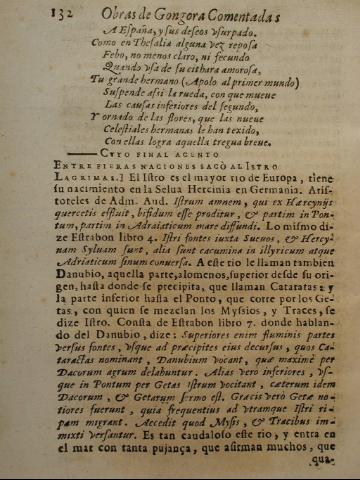 132 Obras de Gongora Comentadas
A España, y sus deseos vsurpado.
Como en Thesalia alguna vez reposa
Febo, no menos claro, ni fecundo
Quando vsa de su cithara amorosa,
Tu grande hermano (Apolo al primer mundo)
Suspende assi la rueda, con que mueve
Las causas inferiores del segundo,
Y ornado de las flores, que las nueve
Celestiales hermanas le han texido,
Con ellas logra aquella tregua breve.
CVYO FINAL ACENTO
ENTRE FIERAS NACIONES SACÒ AL ISTRO
LAGRIMAS.] El Istro es el mayor rio de Europa, tiene
su nacimiento en la Selua Hercinia en Germania. Aris-
toteles de Adm. Aud. Istrum amnem, qui ex Hærcynijs
quercetis effluit, bifidum esse proditur, & partim in Pon-
tum, partim in Adriaticum mare diffundi. Lo mismo di-
ze Estrabon libro 4. Istri fontes iuxta Sueuos, & Hercy-
nam Syluam sunt, alij sunt cacumina in illyricum atque
Adriaticum sinum conuersa. A este rio le llaman tambien
Danubio, aquella parte, alomenos, superior desde su ori-
gen, hasta donde se precipita, que llaman Cataratas: y
la parte inferior hasta el Ponto, que corre por los Ge-
tas, con quien se mezclan los Myssios, y Traces, se
dize Istro. Consta de Estrabon libro 7. donde hablan-
do del Danubio, dize: Superiores enim fluminis partes
versus fontes, vsque ad præcipites eius decursus, quos Ca-
taractas nominant, Danubium vocant, quæ maximè per
Dacorum agrum delabuntur. Alias vero inferiores, vs-
que in Pontum per Getas Istrum vocitant, cæterum idem
Dacorum, & Getarum sermo est. Græcis verò Getæ no-
tiores fuerunt, quia frequentius ad vtramque Istri ri-
pam migrant. Accedit quod Mysis, & Tracibus im-
mixti versantur. Es tan caudaloso este rio, y entra en
el mar con tanta pujança, que afirman muchos, que
qua-